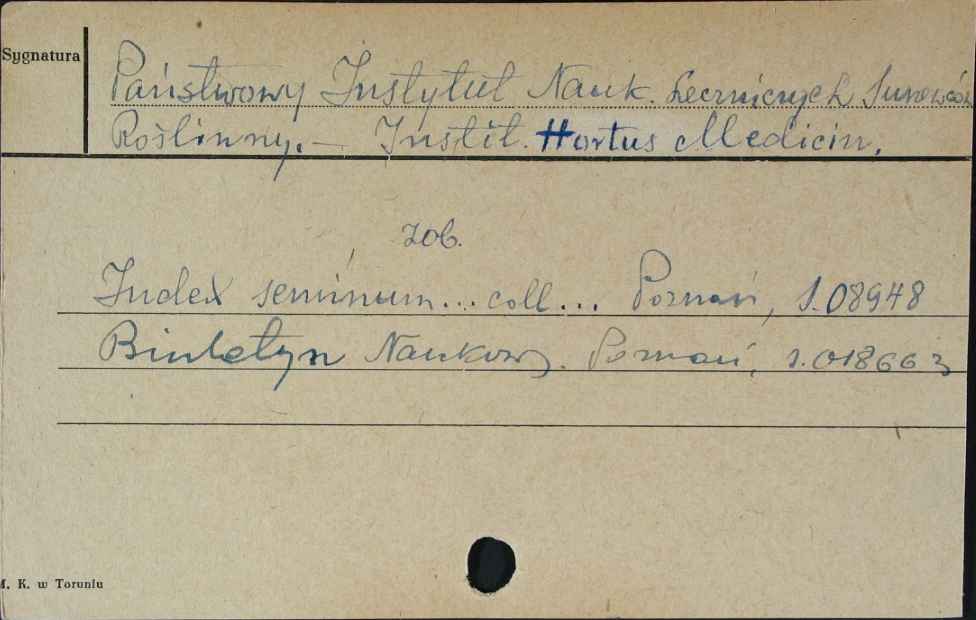 Sygnatura
Państwowy Instytut Nauk. Leczniczych Surowców
Roślinny. — Instit. Hortus Medicin.
zob.
Index seminum... coll... Poznań, S.08948
Biuletyn Naukowy. Poznań, S.018663
M. K. w Toruniu